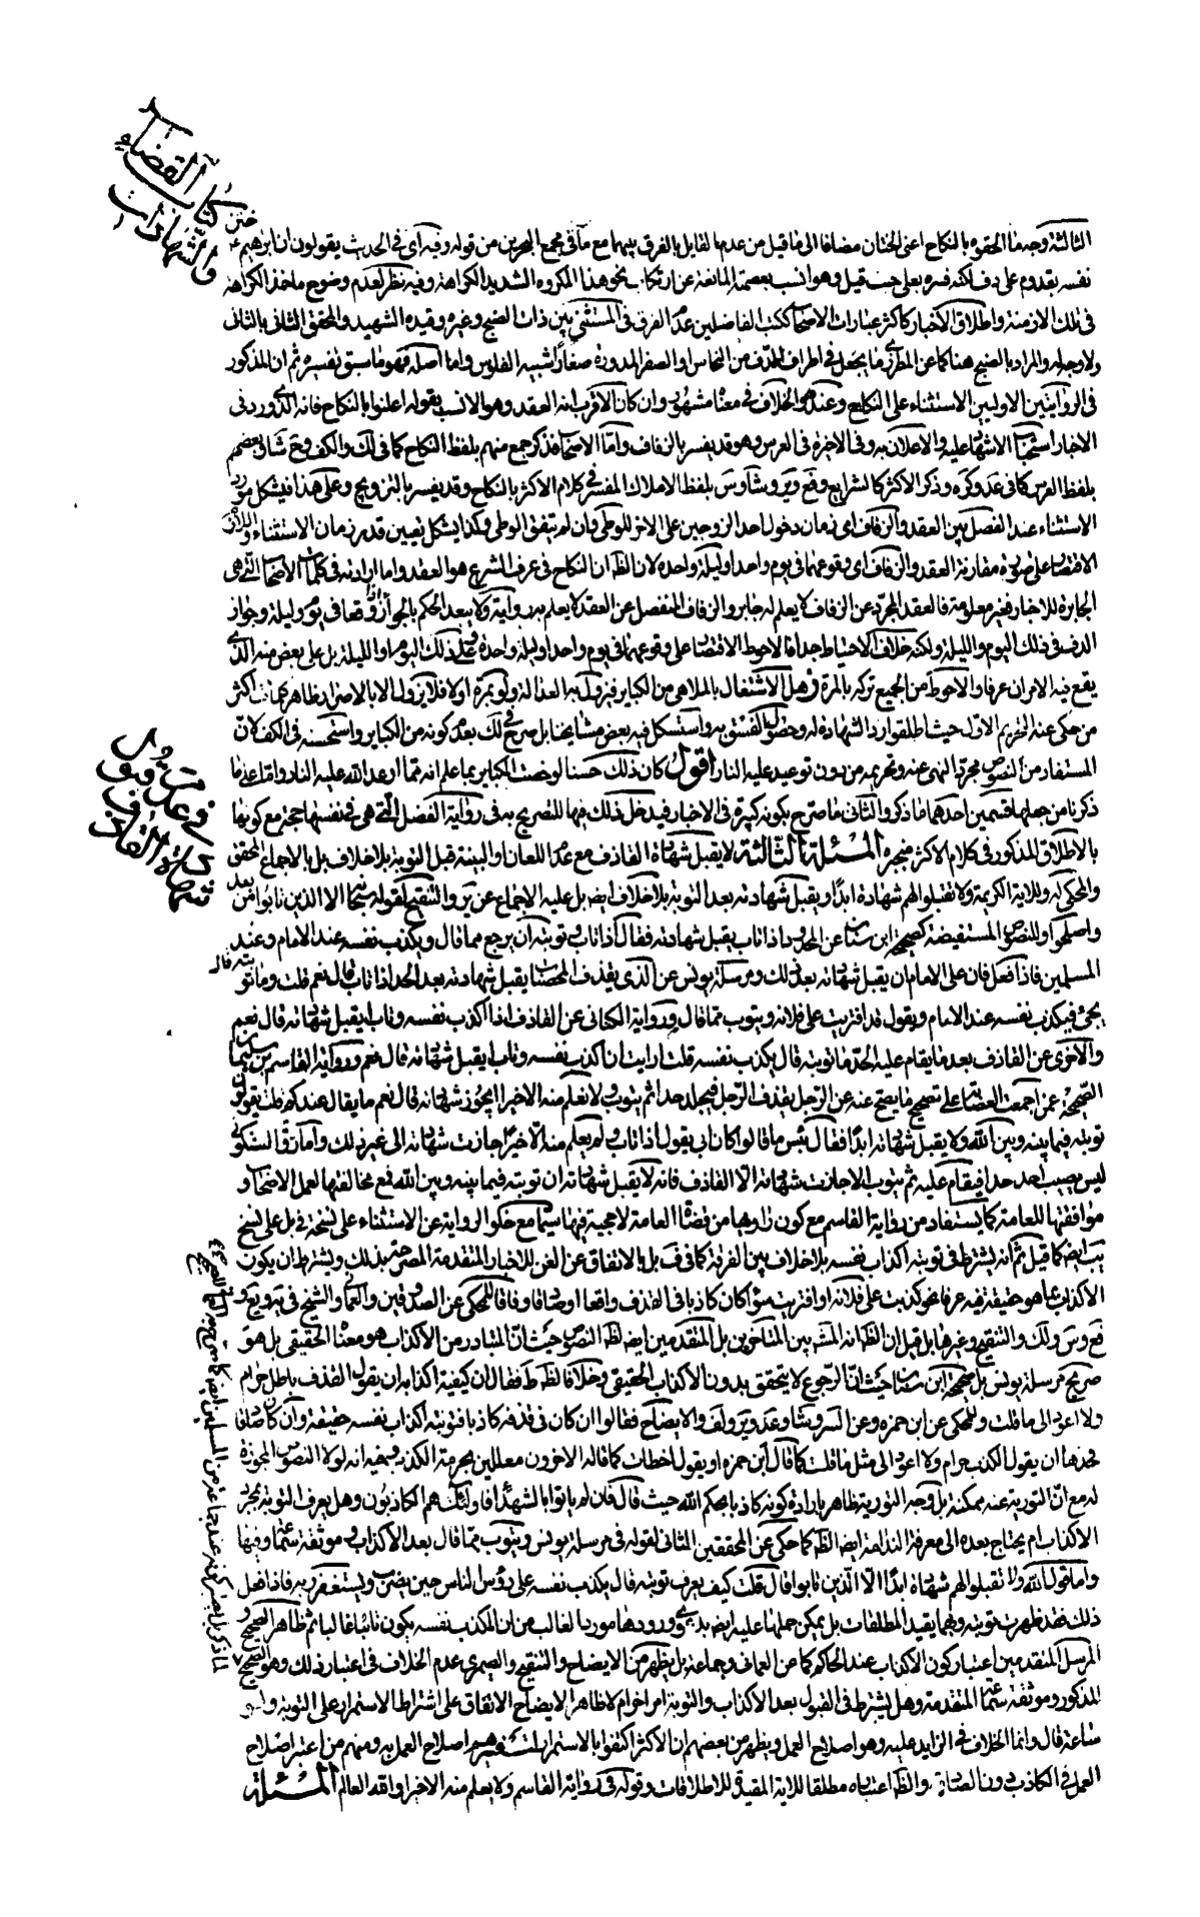 كتاب القضاء
والشهادات
الثالثة وجه ما الحقوه بالنكاح اعنى الختان مضافا الى ما قيل من عدم القايل بالفرق بينهما مع ما فى مجمع البحرين من قوله وفيه اى فى الحديث يقولون ان ابرهيم ختن
نفسه بقدوم على دف لكنه فسره بعلى جنب قيل وهو انسب بعصمته المانعة عن ارتكاب نحو هذا المكروه الشديد الكراهة وفيه نظر لعدم وضوح ماخذ الكراهة
فى تلك الازمنة واطلاق الاخبار كاكثر عبارات الاصحاب ككتب الفاضلين عدم الفرق فى المستثنى بين ذات الصنج وغيره وقيده الشهيد والمحقق الثانى بالثانى
ولا وجه له والمراد بالصنج هنا كما عن المطرزى ما يجعل فى اطراف الدف من النحاس او الصفر المدورة صغارا شبيه الفلوس واما اصله فهو ما سبق تفسيره ثم ان المذكور
فى الروايتين الاوليين الاستثناء على النكاح وعندهم الخلاف فى معناه مشهور وان كان الاقرب انه العقد وهو الانسب بقوله اعلنوا بالنكاح فانه الذى ورد فى
الاخبار استحباب الاشهاد عليه والاعلان به وفى الاخرة فى العرس وهو قد يفسر بالزفاف واما الاصحاب فذكر جمع منهم بلفظ النكاح كما فى لك والكف وعبر بعضهم
بلفظ العرس كما فى عد وكره وذكر الاكثر كالشرايع بلفظ الاملاك المفسر فى كلام الاكثر بالنكاح وقد يفسر بالتزويج وعلى هذا فيشكل مورد
الاستثناء عند الفصل بين العقد والزفاف اى زمان دخول احد الزوجين على الاخر للوطى وان لم يتفق الوطى وكذا يشكل تعيين قدر زمان الاستثناء واللازم
الاقتصار على صورة مقارنة العقد والزفاف اى وقوعهما فى يوم واحد او ليلة واحدة لان الظ ان النكاح فى عرف الشرع هو العقد واما ارادته فى كلمات الاصحاب التى هى
الجابرة للاخبار فغير معلومة فالعقد المجرد عن الزفاف لا يعلم له جابر والزفاف المنفصل عن العقد لا يعلم به رواية ولا يبعد الحكم بالجواز لو وقعا فى يوم وليلة وجواز
الدف فى ذلك اليوم والليلة ولكنه خلاف الاحتياط جدا فالاحوط الاقتصار على وقوعهما فى يوم واحد او ليلة واحدة وعلى ذلك اليوم او الليلة بل على بعض منه الذى
يقع فيه الامران عرفا والاحوط من الجميع تركه بالمرة وهل الاشتغال بالملاهى من الكباير فيزول به العدالة ولو بمرة اولا فلا يزول الا بالاصرار ظاهر كلمات اكثر
من حكى عنه التحريم الاول حيث اطلقوا رد الشهادة له وحصول الفسق به واستشكل فيه بعض مشايخنا بل صرح فى لك بعدم كونه من الكباير واستحسنه فى الكف لان
المستفاد من النصوص مجرد النهى عنه وتحريمه من دون توعيد عليه النار اقول كان ذلك حسنا لو خصت الكباير بما علم انه مما اوعد الله عليه النار واما على ما
ذكرنا من جعلها قسمين احدهما ما ذكر والثانى ما صرح بكونه كبيرة فى الاخبار فيدخل ذلك فيها للتصريح به فى رواية الفضل التى هى فى نفسها حجة مع كونها
بالاطلاق المذكور فى كلام الاكثر منجبرة المسئلة الثالثة لا يقبل شهادة القاذف مع عدم اللعان او البينة قبل التوبة بلا خلاف بل بالاجماع المحقق
فى عدم قبول
شهادة القاذف
والمحكى له وللاية الكريمة ولا تقبلوا لهم شهادة ابدا ويقبل شهادته بعد التوبة بلا خلاف ايضا بل عليه الاجماع عن ير والتنقيح لقوله سبحانه الا الذين تابوا من بعد
واصلحوا وللنصوص المستفيضة كصحيحة ابن سنان عن المحدود اذا تاب يقبل شهادته فقال اذا تاب وتوبته ان يرجع مما قال ويكذب نفسه عند الامام وعند
المسلمين فاذا فعل فان على الامام ان يقبل شهادته بعد ذلك ومرسلة يونس عن الذى يقذف المحصنات يقبل شهادته بعد الحد اذا تاب قال نعم قلت وما توبته قال
يجئ فيكذب نفسه عند الامام ويقول قد افتريت على فلانة ويتوب مما قال ورواية الكنانى عن القاذف اذا اكذب نفسه وتاب ايقبل شهادته قال نعم
والاخرى عن القاذف بعد ما يقام عليه الحد ما توبته قال يكذب نفسه قلت ارايت ان اكذب نفسه وتاب ايقبل شهادته قال نعم ورواية القاسم بن سليمان
الصحيحة عمن اجمعت العصابة على تصحيح ما يصح عنه عن الرجل يقذف الرجل فيجلد حدا ثم يتوب ولا نعلم منه الا خيرا ايجوز شهادته قال نعم ما يقال عندكم قلت يقولون
توبته فيما بينه وبين الله ولا يقبل شهادته ابدا فقال بئس ما قالوا كان ابى يقول اذا تاب ولم يعلم منه الا خيرا جازت شهادته الى غير ذلك واما رواية السكونى
ليس يصيب احد حدا فيقام عليه ثم يتوب الا جازت شهادته الا القاذف فانه لا يقبل شهادته ان توبته فيما بينه وبين الله فمع مخالفتها لعمل الاصحاب و
موافقتها للعامة كما يستفاد من رواية القاسم مع كون راويها من قضاة العامة لا حجية فيها سيما مع خلو الرواية عن الاستثناء على نسخة فى بل على نسخ
يب ايضا كما قيل ثم انه يشترط فى توبته اكذاب نفسه بلا خلاف بين الفرقة كما فى ف بل بالاتفاق عن الغنية للاخبار المتقدمة المصرحة بذلك ويشترط ان يكون
الاكذاب بما هو حقيقة فيه عرفا نحو كذبت على فلانة او افتريت سواء كان كاذبا فى القذف واقعا او صادقا وفاقا للمحكى عن الصدوقين والعمانى والشيخ فى ية ويع و
والتنقيح وغيرها بل قيل ان الظ انه المشهور بين المتاخرين بل المتقدمين ايضا لظ النصوص حيث ان المتبادر من الاكذاب هو معناه الحقيقى بل هو
صريح مرسلة يونس بل صحيحة ابن سنان حيث ان الرجوع لا يتحقق بدون الاكذاب الحقيقى وخلافا لظ ط فقال ان كيفية اكذابه ان يقول القذف باطل حرام
ولا اعود الى ما قلت وللمحكى عن ابن حمزة والايضاح فقالوا ان كان فى قذفه كاذبا فتوبته اكذاب نفسه حقيقة وان كان صادقا
فحدها ان يقول الكذب حرام ولا اعود الى مثل ما قلت كما قال ابن حمزة او يقول اخطات كما قاله الاخرون معللين بحرمة الكذب وفيه انه لولا النصوص المجوزة
له مع ان التورية عنه ممكنة بل وجه التورية ظاهر بارادة كونه كاذبا بحكم الله حيث قال فان لم ياتوا بالشهداء فاولئك هم الكاذبون وهل يعرف التوبة بمجرد
الاكذاب ام يحتاج بعده الى معرفة الندامة ايضا الظ كما حكى عن المحققين الثانى لقوله فى مرسلة يونس ويتوب مما قال بعد الاكذاب وموثقة سماعة وفيها
واما قول الله ولا تقبلوا لهم شهادة ابدا الا الذين تابوا قال قلت كيف يعرف توبته قال يكذب نفسه على رؤس الناس حين يضرب ويستغفر ربه فاذا فعل
ذلك فقد ظهرت توبته وبهما يقيد المطلقات بل يمكن حملها عليه ايضا بدعوى ورودها مورد الغالب من ان المكذب نفسه يكون تائبا غالبا ثم ظاهر الصحيح و
المرسل المتقدمين اعتبار كون الاكذاب عند الحاكم كما عن العمانى وجماعة بل يظهر من الايضاح والتنقيح والصيمرى عدم الخلاف فى اعتبار ذلك وهو الصحيح
المذكور وموثقة سماعة المتقدمة وهل يشترط فى القبول بعد الاكذاب والتوبة امر اخر ام لا ظاهر الايضاح الاتفاق على اشتراط الاستمرار على التوبة
ساعة قال وانما الخلاف فى الزايد عليه وهو اصلاح العمل ويظهر من بعضهم ان الاكثر اكتفوا بالاستمرار اصلاح العمل به ومنهم من اعتبر اصلاح
العمل فى الكاذب دون الصادق والظ اعتباره مطلقا للاية المقيدة للاطلاقات وقوله فى رواية القاسم ولا يعلم منه الا خيرا والله العالم المسئلة